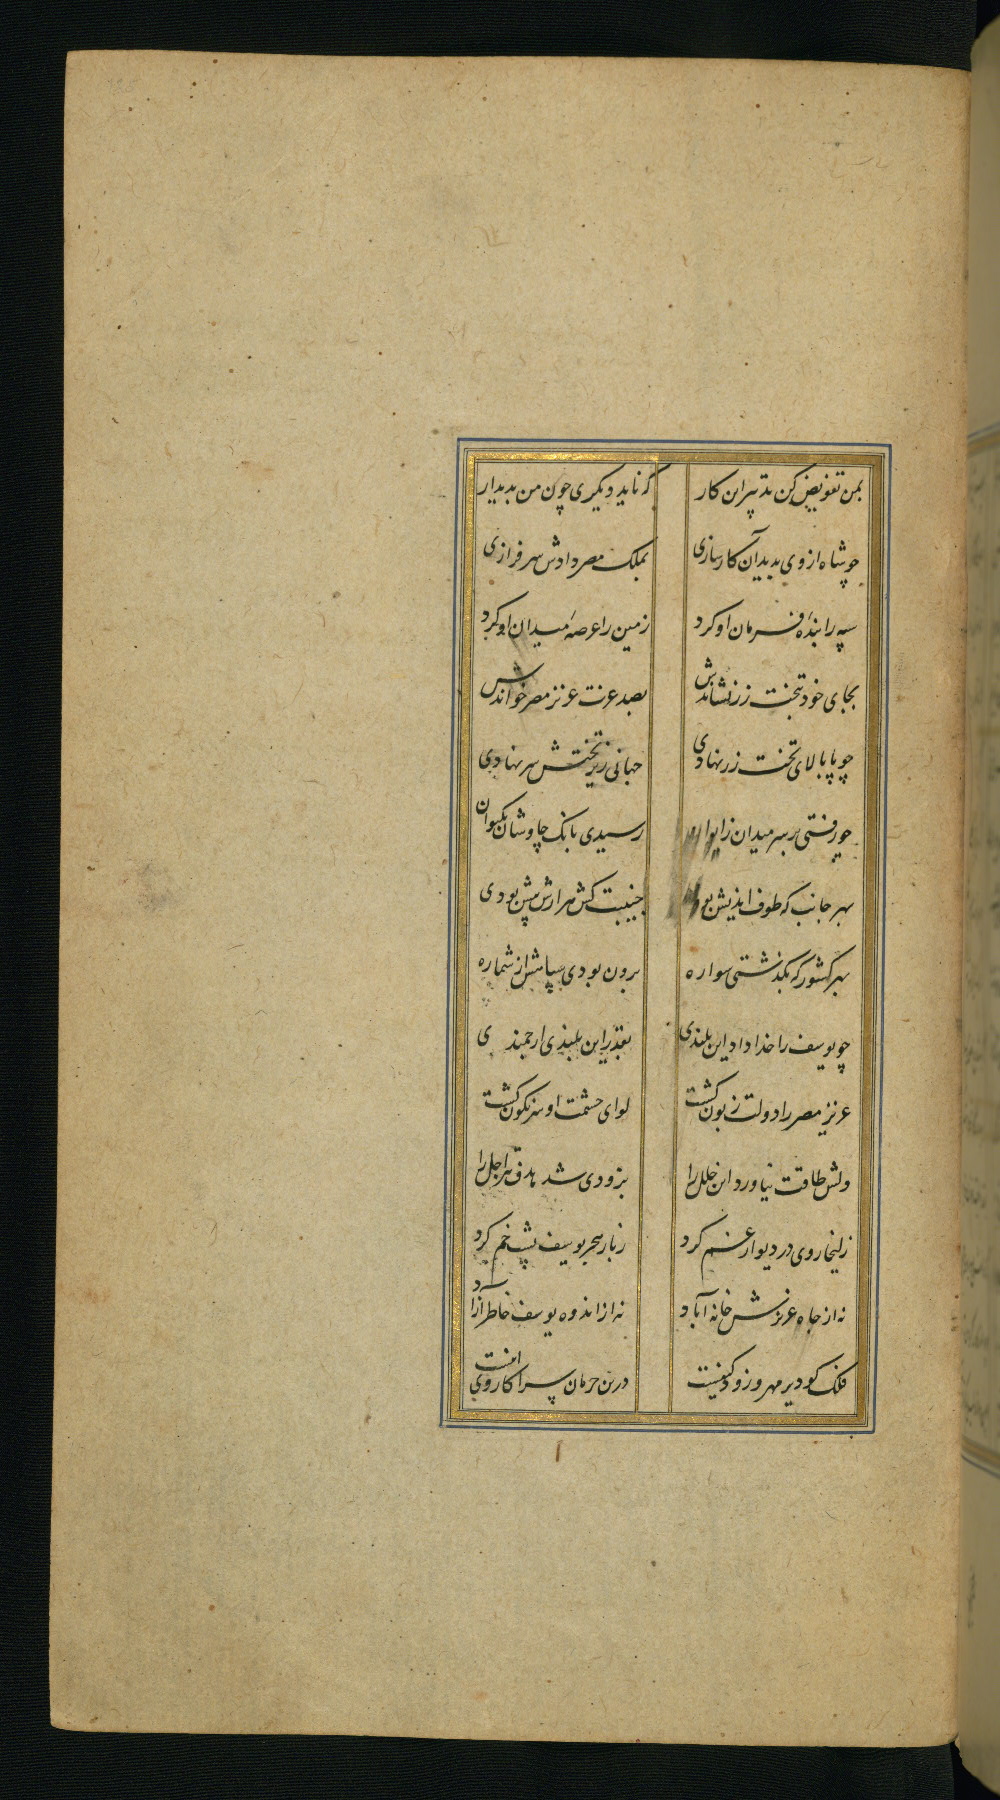 بمن تفویض کن تدبیر این کار که ناید دیگری چون من بدیدار
چو شاه از وی بدید آن کارسازی بملک مصر دادش سرفرازی
سپه را بندهٔ فرمان او کرد زمین را عرصهٔ میدان او کرد
بجای خود بتخت زر نشاندش بصد عزت عزیز مصر خواندش
چو پا بالای تخت زر نهادی جهانی زیر تختش سر نهادی
چو رفتی بر سر میدان ز ایوان رسیدی بانک چاوشان بکیوان
بهر جانب که طوف اندیش بودی جنیبت کش هزارش پیش بودی
بهر کشور که بگذشتی سواره برون بودی سپاهش از شماره
چو یوسف را خدا داد این بلندی بقدر این بلندی ارجمندی
عزیز مصر را دولت زبون گشت لوای حشمت او سرنگون گشت
دلش طاقت نیاورد این خلل را بزودی شد هدف تیر اجل را
زلیخا روی در دیوار غم کرد ز بار هجر یوسف پشت خم کرد
نه از جاه عزیزش خانه آباد نه از اندوه یوسف خاطر آزاد
فلک کو دیر مهر و زود کینست درین حرمان سرا کار وی اینست